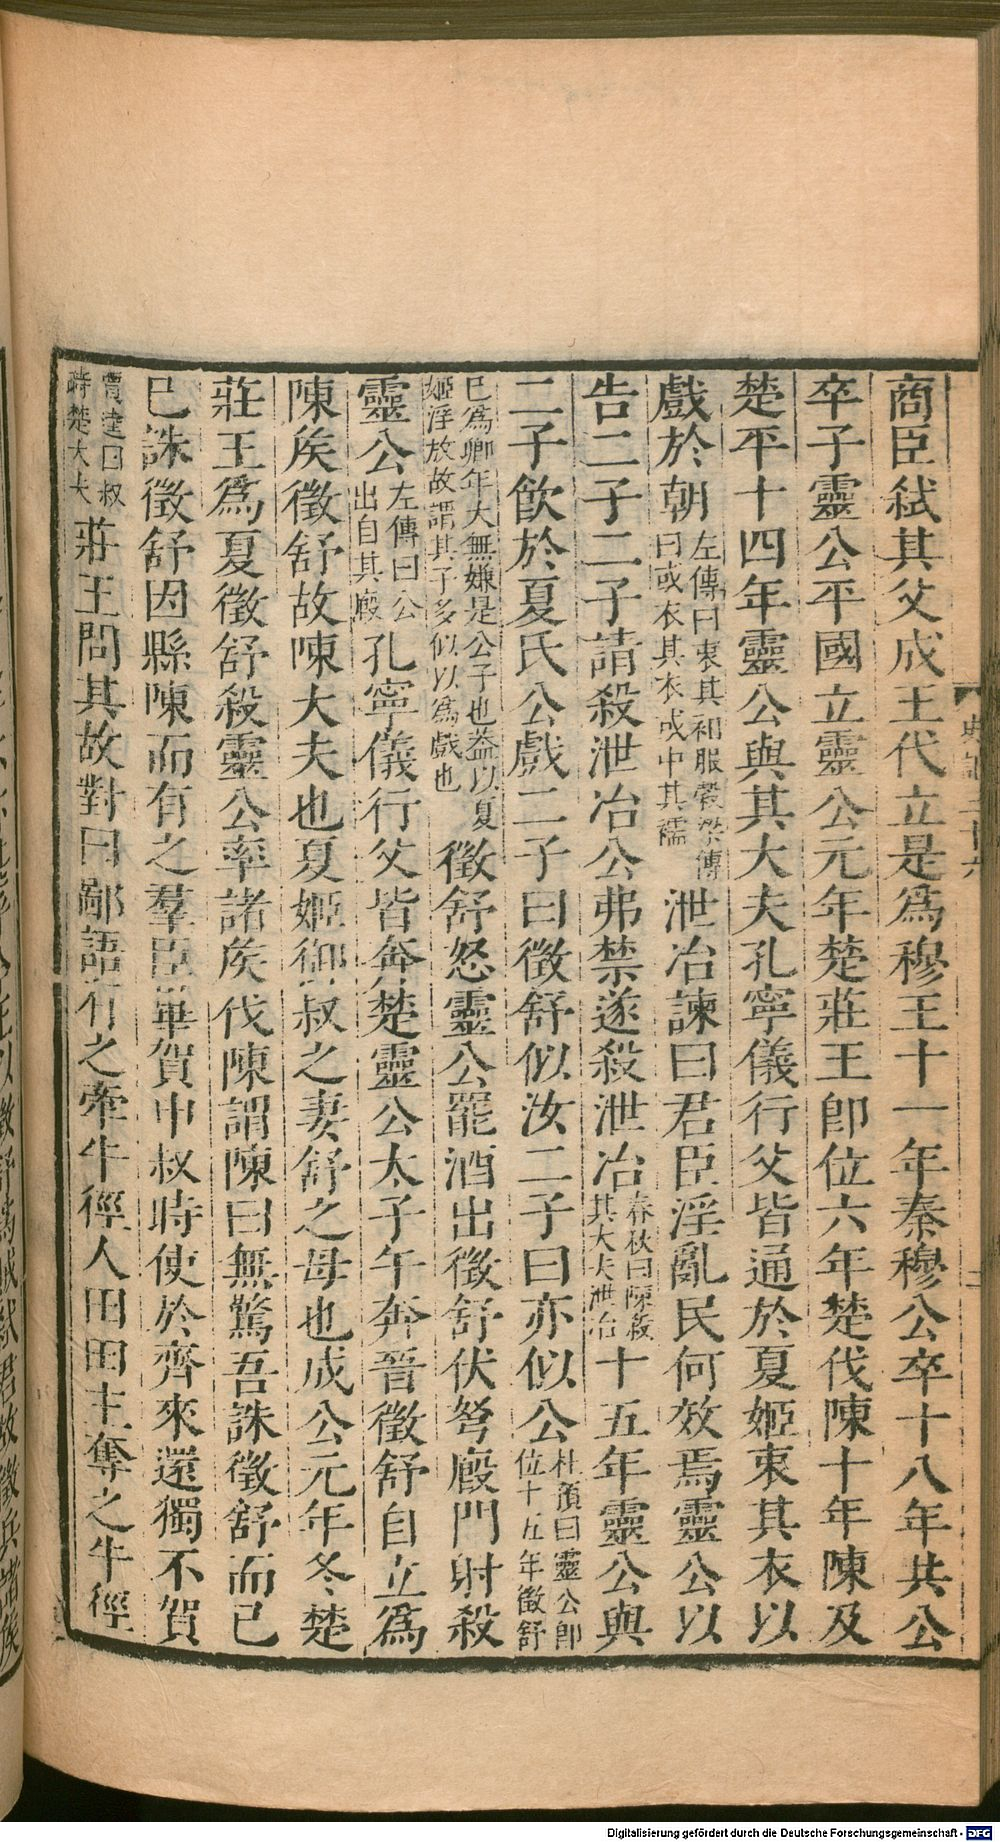 商臣弑其父成王代立是爲穆王十一年秦穆公卒十八年共公
卒子靈公平國立靈公元年楚莊王卽位六年楚伐陳十年陳及
楚平十四年靈公與其大夫孔寧儀行父皆通於夏姬衷其衣以
戲於朝左傳曰衷其衵服穀梁傳曰或衣其衣或中其襦泄冶諫曰君臣淫亂民何效焉靈公以
告二子二子請殺泄冶公弗禁遂殺泄冶春秋曰陳殺其大夫泄冶十五年靈公與
二子飮於夏氏公戲二子曰徵舒似汝二子曰亦似公杜預曰靈公卽位十五年徵舒
已爲卿年大無嫌是公子也蓋以夏姬淫放故謂其子多似以爲戲也徵舒怒靈公罷酒出徵舒伏弩廄門射殺
靈公左傳曰公出自其廄孔寧儀行父皆奔楚靈公太子午奔晉徵舒自立爲
陳矦徵舒故陳大夫也夏姬御叔之妻舒之母也成公元年冬楚
莊王爲夏徵舒殺靈公率諸矦伐陳謂陳曰無驚吾誅徵舒而已
已誅徵舒因縣陳而有之羣臣畢賀申叔時使於齊來還獨不賀
賈逵曰叔時楚大夫莊王問其故對曰鄙語有之牽牛徑人田田主奪之牛徑
Digitalisierung gefördert durch die Deutsche Forschungsgemeinschaft - DFG